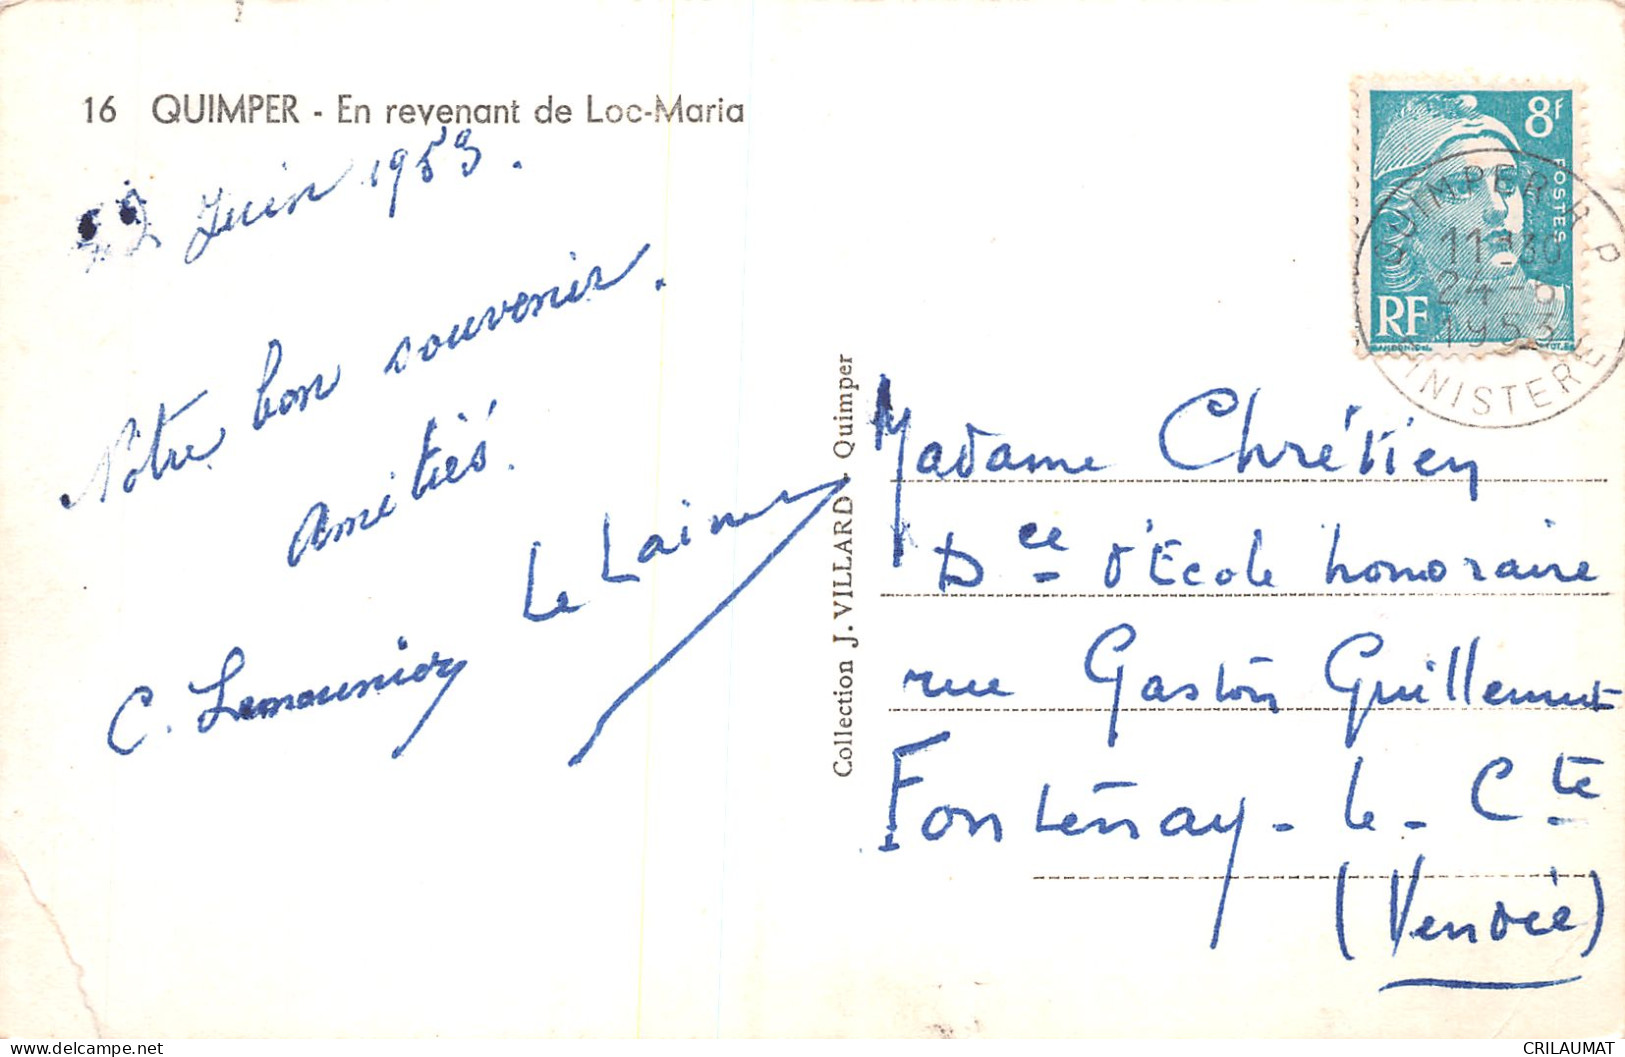 16 QUIMPER - En revenant de Loc-Maria
22 Juin 1953.
Notre bon souvenir.
Amitiés.
C. Lemounier
Collection J. VILLARD - Quimper
8f
POSTES
RF
QUIMPER R P
11 H30
24 -6
1953
FINISTERE
Madame Chrétien
Dce d'Ecole honoraire
rue Gaston Guillemet
Fontenay-le-Cte
(Vendée)
CRILAUMAT